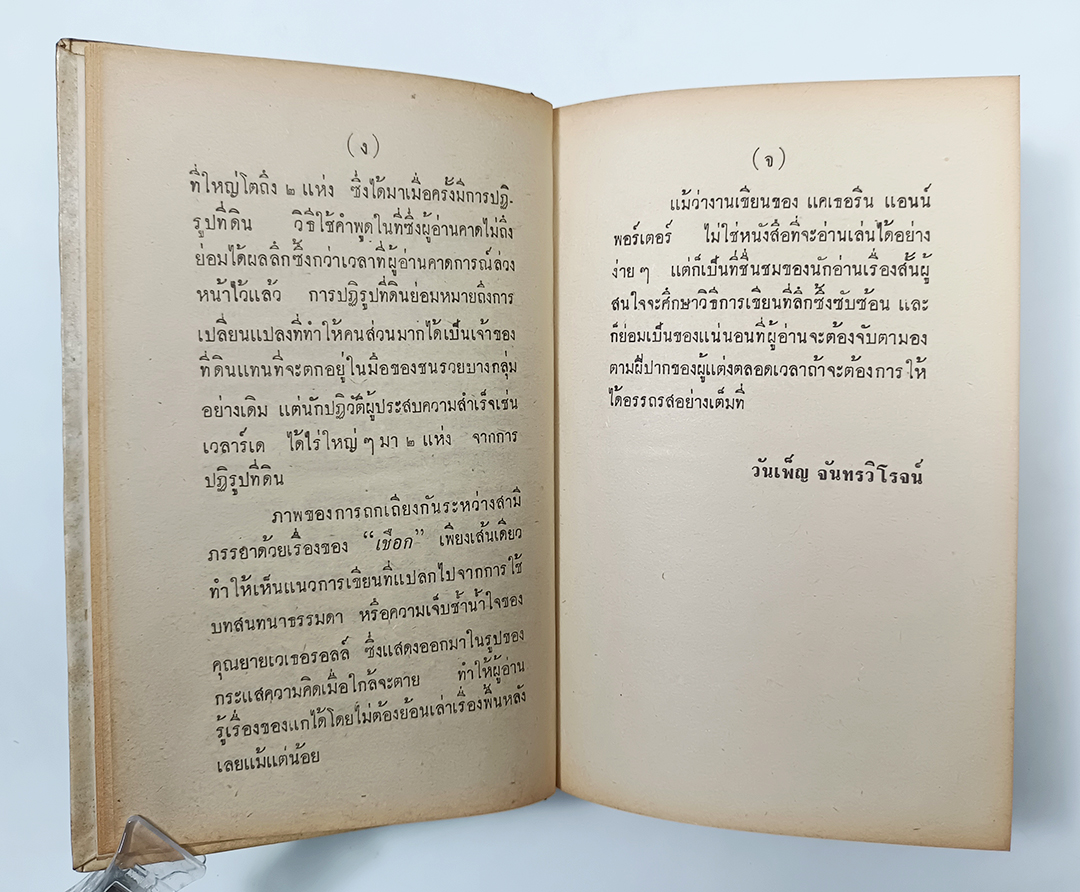 (ง)
ที่ใหญ่โตถึง ๒ แห่ง ซึ่งได้มาเมื่อครั้งมีการปฏิ-
รูปที่ดิน วิธีใช้คำพูดในที่ซึ่งผู้อ่านคาดไม่ถึง
ย่อมได้ผลลึกซึ้งกว่าเวลาที่ผู้อ่านคาดการณ์ล่วง
หน้าไว้แล้ว การปฏิรูปที่ดินย่อมหมายถึงการ
เปลี่ยนแปลงที่ทำให้คนส่วนมากได้เป็นเจ้าของ
ที่ดินแทนที่จะตกอยู่ในมือของชนรวยบางกลุ่ม
อย่างเดิม แต่นักปฏิวัติผู้ประสบความสำเร็จเช่น
เวลาร์เด ได้ไร่ใหญ่ ๆ มา ๒ แห่ง จากการ
ปฏิรูปที่ดิน
ภาพของการถกเถียงกันระหว่างสามี
ภรรยาด้วยเรื่องของ “เชือก” เพียงเส้นเดียว
ทำให้เห็นแนวการเขียนที่แปลกไปจากการใช้
บทสนทนาธรรมดา หรือความเจ็บช้ำน้ำใจของ
คุณยายเวเธอรอลล์ ซึ่งแสดงออกมาในรูปของ
กระแสความคิดเมื่อใกล้จะตาย ทำให้ผู้อ่าน
รู้เรื่องของแกได้โดยไม่ต้องย้อนเล่าเรื่องพื้นหลัง
เลยแม้แต่น้อย
(จ)
แม้ว่างานเขียนของ แคเธอรีน แอนน์
พอร์เตอร์ ไม่ใช่หนังสือที่จะอ่านเล่นได้อย่าง
ง่าย ๆ แต่ก็เป็นที่ชื่นชมของนักอ่านเรื่องสั้นผู้
สนใจจะศึกษาวิธีการเขียนที่ลึกซึ้งซับซ้อน และ
ก็ย่อมเป็นของแน่นอนที่ผู้อ่านจะต้องจับตามอง
ตามฝีปากของผู้แต่งตลอดเวลาถ้าจะต้องการให้
ได้อรรถรสอย่างเต็มที่
วันเพ็ญ จันทรวิโรจน์